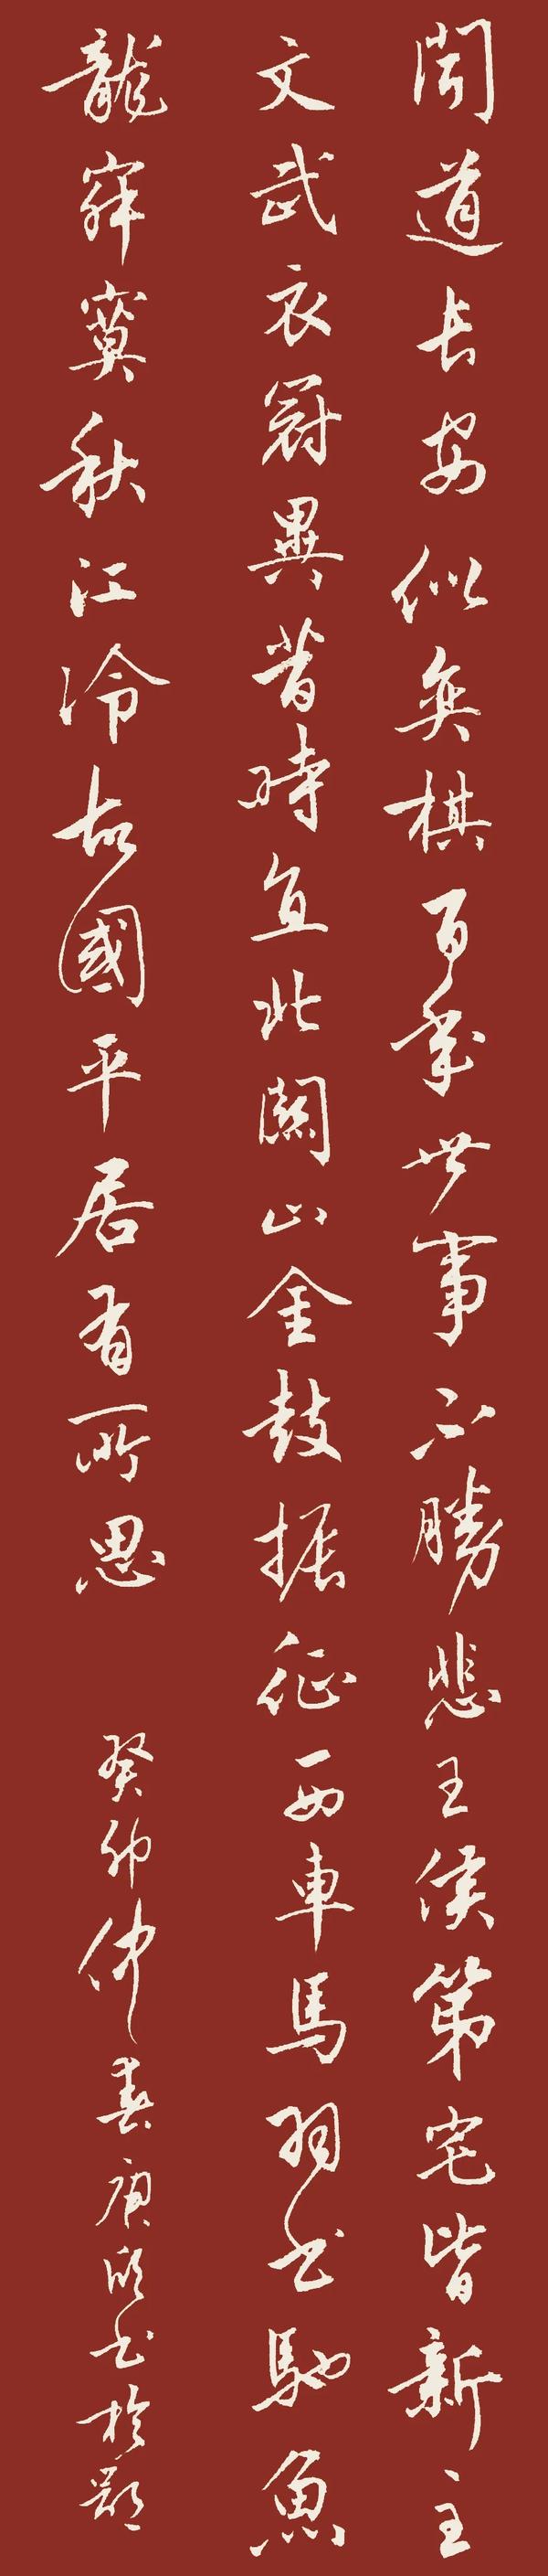 聞道長安似奕棋百年世事不勝悲王侯第宅皆新主
文武衣冠異昔時直北關山金鼓振征西車馬羽書馳魚
龍寂寞秋江冷故國平居有所思
癸卯仲春庚欣書於